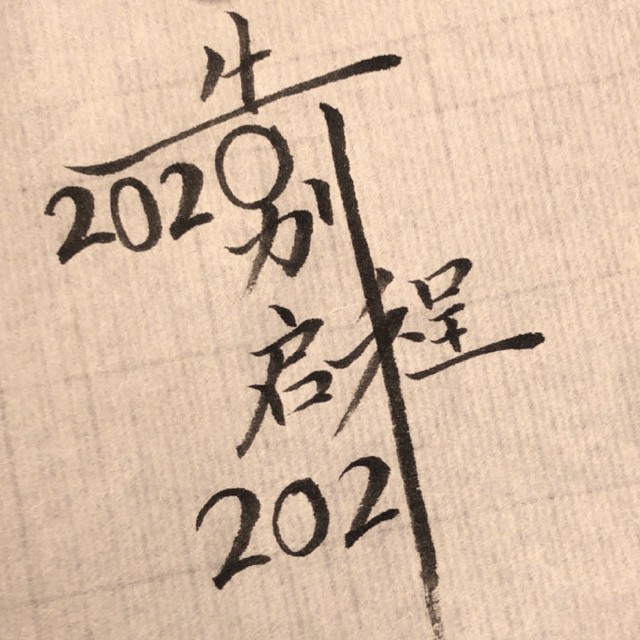 告别
2020
启程
2021